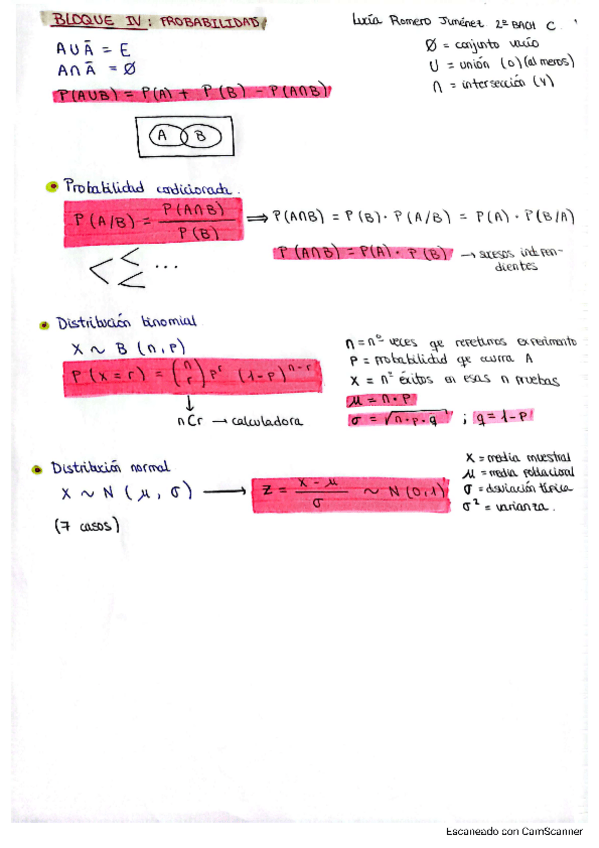 BLOQUE IV: PROBABILIDAD
Lucía Romero Jiménez 2º BACH C.
A∪Ā = E
A∩Ā = Ø
P(A∪B) = P(A) + P(B) - P(A∩B)
Ø = conjunto vacío
U = unión (o) (al menos)
∩ = intersección (y)
A B
Probabilidad condicionada.
P(A/B) = P(A∩B) / P(B) ⟹ P(A∩B) = P(B)· P(A/B) = P(A)· P(B/A)
P(A∩B) = P(A)· P(B) → sucesos indepen-
dientes
...
Distribución binomial
X ~ B (n,p)
P(x=r) = (n r) pʳ (1-p)ⁿ⁻ʳ
nCr → calculadora
n = nº veces qe repetimos experimento
P = probabilidad qe ocurra A
x = nº éxitos en esas n pruebas
μ = n·p
σ = √n·p·q ; q = 1-p
Distribución normal
X ~ N(μ, σ) → Z = x - μ / σ ~ N(0,1)
(7 casos)
X = media muestral
μ = media poblacional
σ = desviación típica
σ² = varianza.
Escaneado con CamScanner